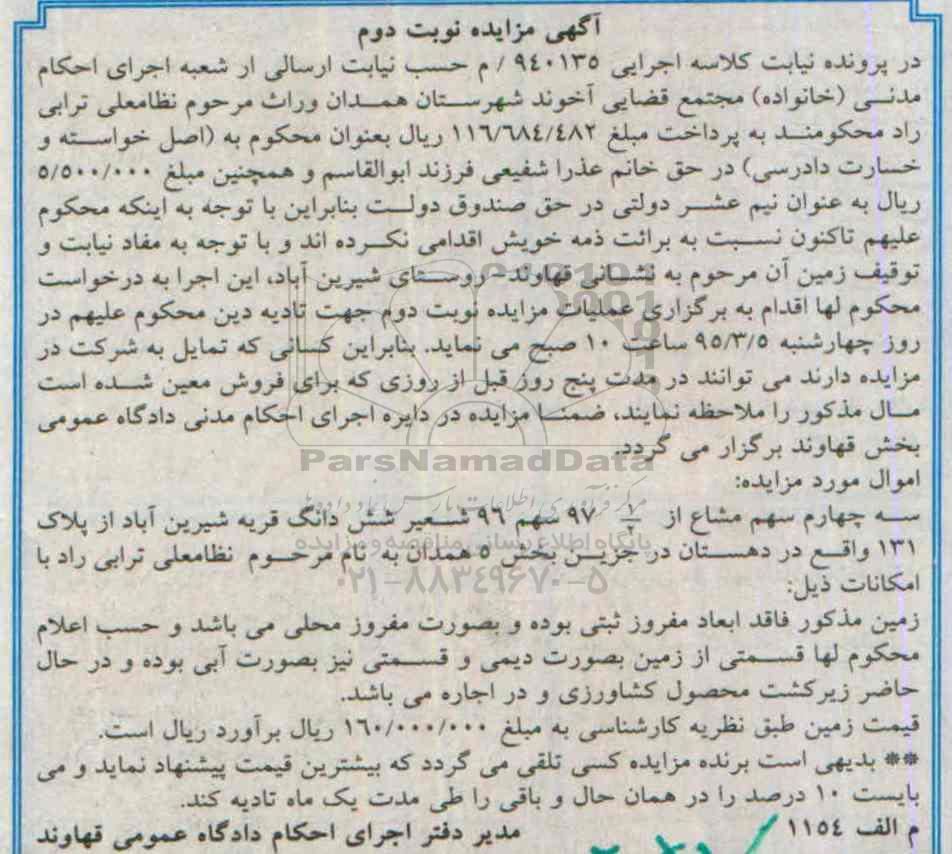 آگهی مزایده نوبت دوم
در پرونده نیابت کلاسه اجرایی ۹٤۰۱۳٥ / م حسب نیابت ارسالی از شعبه اجرای احکام
مدنی (خانواده) مجتمع قضایی آخوند شهرستان همدان وراث مرحوم نظامعلی ترابی
راد محکومند به پرداخت مبلغ ۱۱٦/٦۸٤/٤۸۲ ریال بعنوان محکوم به (اصل خواسته و
خسارت دادرسی) در حق خانم عذرا شفیعی فرزند ابوالقاسم و همچنین مبلغ ٥/٥۰۰/۰۰۰
ریال به عنوان نیم عشر دولتی در حق صندوق دولت بنابراین با توجه به اینکه محکوم
علیهم تاکنون نسبت به برائت ذمه خویش اقدامی نکرده اند و با توجه به مفاد نیابت و
توقیف زمین آن مرحوم به نشانی قهاوند- روستای شیرین آباد، این اجرا به درخواست
محکوم لها اقدام به برگزاری عملیات مزایده نوبت دوم جهت تادیه دین محکوم علیهم در
روز چهارشنبه ۹٥/۳/٥ ساعت ۱۰ صبح می نماید. بنابراین کسانی که تمایل به شرکت در
مزایده دارند می توانند در مدت پنج روز قبل از روزی که برای فروش معین شده است
مال مذکور را ملاحظه نمایند، ضمنا مزایده در دایره اجرای احکام مدنی دادگاه عمومی
بخش قهاوند برگزار می گردد.
ParsNamadData
اموال مورد مزایده:
سه چهارم سهم مشاع از ۹۷ سهم ۹٦ شعیر شش دانگ قریه شیرین آباد از پلاک
پایگاه اطلاع رسانی مناقصه و مزایده
۱۳۱ واقع در دهستان در جزین بخش ٥ همدان به نام مرحوم نظامعلی ترابی راد با
امکانات ذیل:
۰۲۱-۸۸۳٤۹٦۷۰-٥
زمین مذکور فاقد ابعاد مفروز ثبتی بوده و بصورت مفروز محلی می باشد و حسب اعلام
محکوم لها قسمتی از زمین بصورت دیمی و قسمتی نیز بصورت آبی بوده و در حال
حاضر زیرکشت محصول کشاورزی و در اجاره می باشد.
قیمت زمین طبق نظریه کارشناسی به مبلغ ۱٦۰/۰۰۰/۰۰۰ ریال برآورد ریال است.
** بدیهی است برنده مزایده کسی تلقی می گردد که بیشترین قیمت پیشنهاد نماید و می
بایست ۱۰ درصد را در همان حال و باقی را طی مدت یک ماه تادیه کند.
م الف ۱۱٥٤ مدیر دفتر اجرای احکام دادگاه عمومی قهاوند